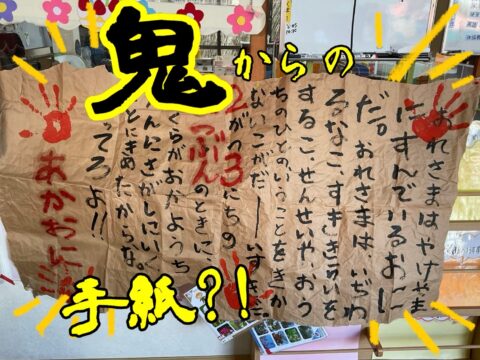 鬼からの
おれさまはやけやま
にすんでいるおーに
だ。おれさまは、いぢわ
るなこ、すききらいを
するこ、せんせいや、おう
ちのひとのいうことをきか
ないこがだーいすきだ。
2がつ3にちの
つぶんのときに、
くらがおかようち
んにさがしにいく
とにきめたからな。
ってろよ!!
あかおに
手紙?!